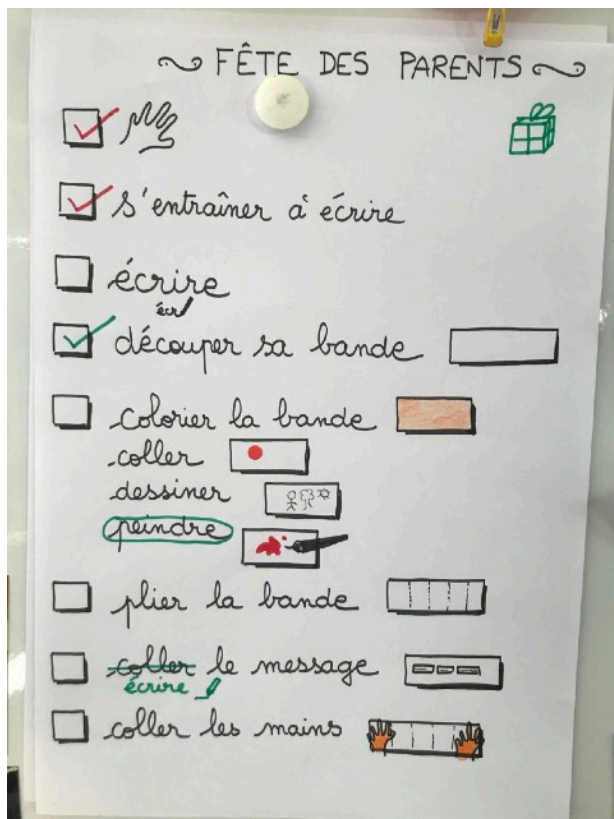 FÊTE DES PARENTS
s'entraîner à écrire
écrire
écr
découper sa bande
colorier la bande
coller
dessiner
peindre
plier la bande
coller le message
écrire
coller les mains